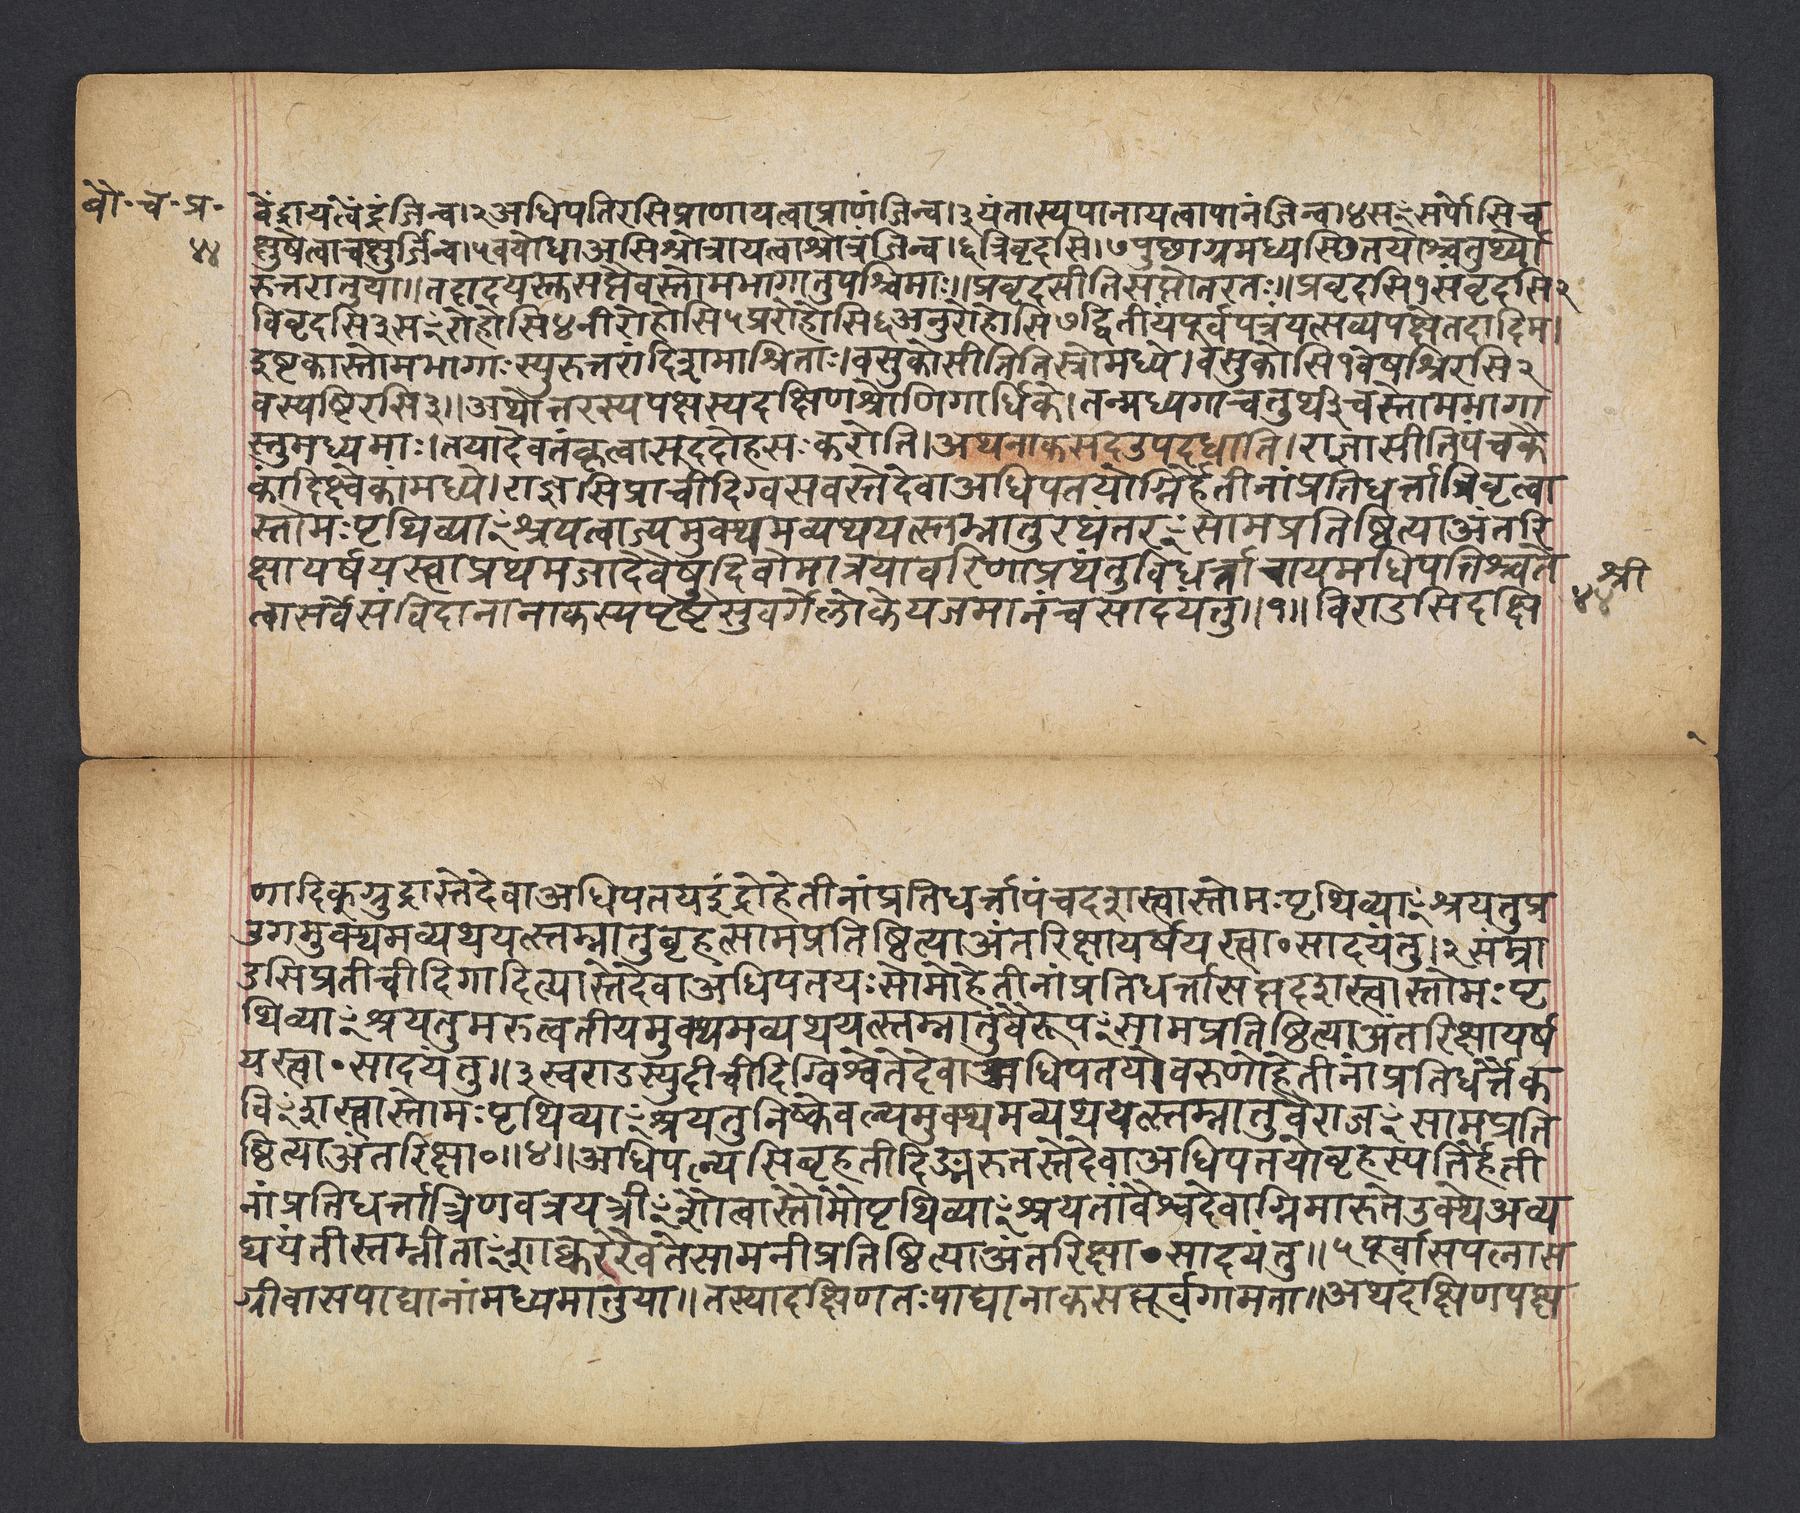 बौ॰च॰प्र॰
४४
वेंद्रायत्वेंद्रंजिन्व।२अधिपतिरसिप्राणायत्वाप्राणंजिन्व।३यंतास्यपानायत्वापानंजिन्व।४सꣳसर्पोसिच
क्षुषेत्वाचक्षुर्जिन्व।५वयोधाअसिश्रोत्रायत्वाश्रोत्रंजिन्व।६त्रिवृदसि।७पुछाग्रमध्यस्छितयोश्चतुर्थ्यो
रुत्तरानुया॥तदादयस्तसप्तैवस्तोमभागानुपश्चिमाः॥प्रवृदसीतिसप्तोत्तरतः॥प्रवृदसि१संवृदसि२
विवृदसि३सꣳरोहोसि४नीरोहोसि५प्ररोहोसि६अनुरोहोसि७द्वितीयंपूर्वपत्रंयत्सव्यपक्षेतदादिम।
इष्टकास्तोमभागाःस्युरुत्तरांदिशमाश्रिताः।वसुकोसीतितिस्रोमध्ये।वसुकोसि१वेषश्रिरसि२
वस्यष्टिरसि३॥अथोत्तरस्यपक्षस्यदक्षिणश्रोणिगार्धिके।तन्मध्यगाचतुर्थी३चस्तोमभागा
स्तुमध्यमाः।तयादेवतंकृत्वासूददोहसःकरोति।अथनाकसदउपदधाति।राज्ञासीतिपंचकै
कांदिक्ष्वेकांमध्ये।राज्ञसिप्राचीदिग्वसवस्तेदेवाअधिपतयोग्निर्हेतीनांप्रतिधर्त्तात्रिवृत्वा
स्तोमःपृथिव्याꣳश्रयत्वाज्यमुक्थ्यमव्यथयत्स्तभ्नातुरथंतरꣳसामप्रतिष्ठित्याअंतरि
क्षायर्षयस्त्वाप्रथमजादेवेषुदिवोमात्रयावरिणाप्रथंतुविधर्त्ताचायमधिपतिश्चते
त्वासर्वेसंविदानानाकस्यपृष्ठेसुवर्गेलोकेयजमानंचसादयंतु॥१॥विराडसिदक्षि
श्री
४४
णादिक्रुग्रुद्रास्तेदेवाअधिपतयइंद्रोहेतीनांप्रतिधर्त्तापंचदशस्त्वास्तोमःपृथिव्याꣳश्रयतुप्र
उगमुक्थ्यमव्यथयत्स्तभ्नातुबृहत्सामप्रतिष्ठित्याअंतरिक्षायर्षयस्त्वा॰सादयंतु।२संम्रा
डसिप्रतीचीदिगादित्यास्तेदेवाअधिपतयःसोमोहेतीनांप्रतिधर्त्तासप्तदशस्त्वास्तोमःपृ
थिव्याꣳश्रयतुमरुत्वतीयमुक्थ्यमव्यथयत्स्तभ्नातुवैरूपꣳसामप्रतिष्ठित्याअंतरिक्षायर्ष
यस्त्वा॰सादयंतु॥३स्वराडस्युदीचीदिग्विश्वेतेदेवाअधिपतयोवरुणोहेतीनांप्रतिधर्त्तैक
विꣳशस्त्वास्तोमःपृथिव्याꣳश्रयतुनिष्केवल्यमुक्थ्यमव्यथयत्स्तभ्नातुवैराजꣳसामप्रति
ष्ठित्याअंतरिक्षा॰॥४॥अधिपत्न्यसिबृहतीदिङ्मरुतस्तेदेवाअधिपतयोबृहस्पतिर्हेती
नांप्रतिधर्त्तात्रिणवत्रयस्त्रीꣳशौत्वास्तोमौपृथिव्याꣳश्रयतांवैश्वदेवाग्निमारुतेउक्थ्येअव्य
थयंतीस्तभ्नीताꣳशाक्वररैवतेसामनीप्रतिष्ठित्याअंतरिक्षा॰सादयंतु॥५पूर्वासपत्नास
ग्रीवासपाद्यानांमध्यमातुया॥तस्यादक्षिणतःपाद्यानाकसत्पूर्वगामता॥अथदक्षिणपक्ष